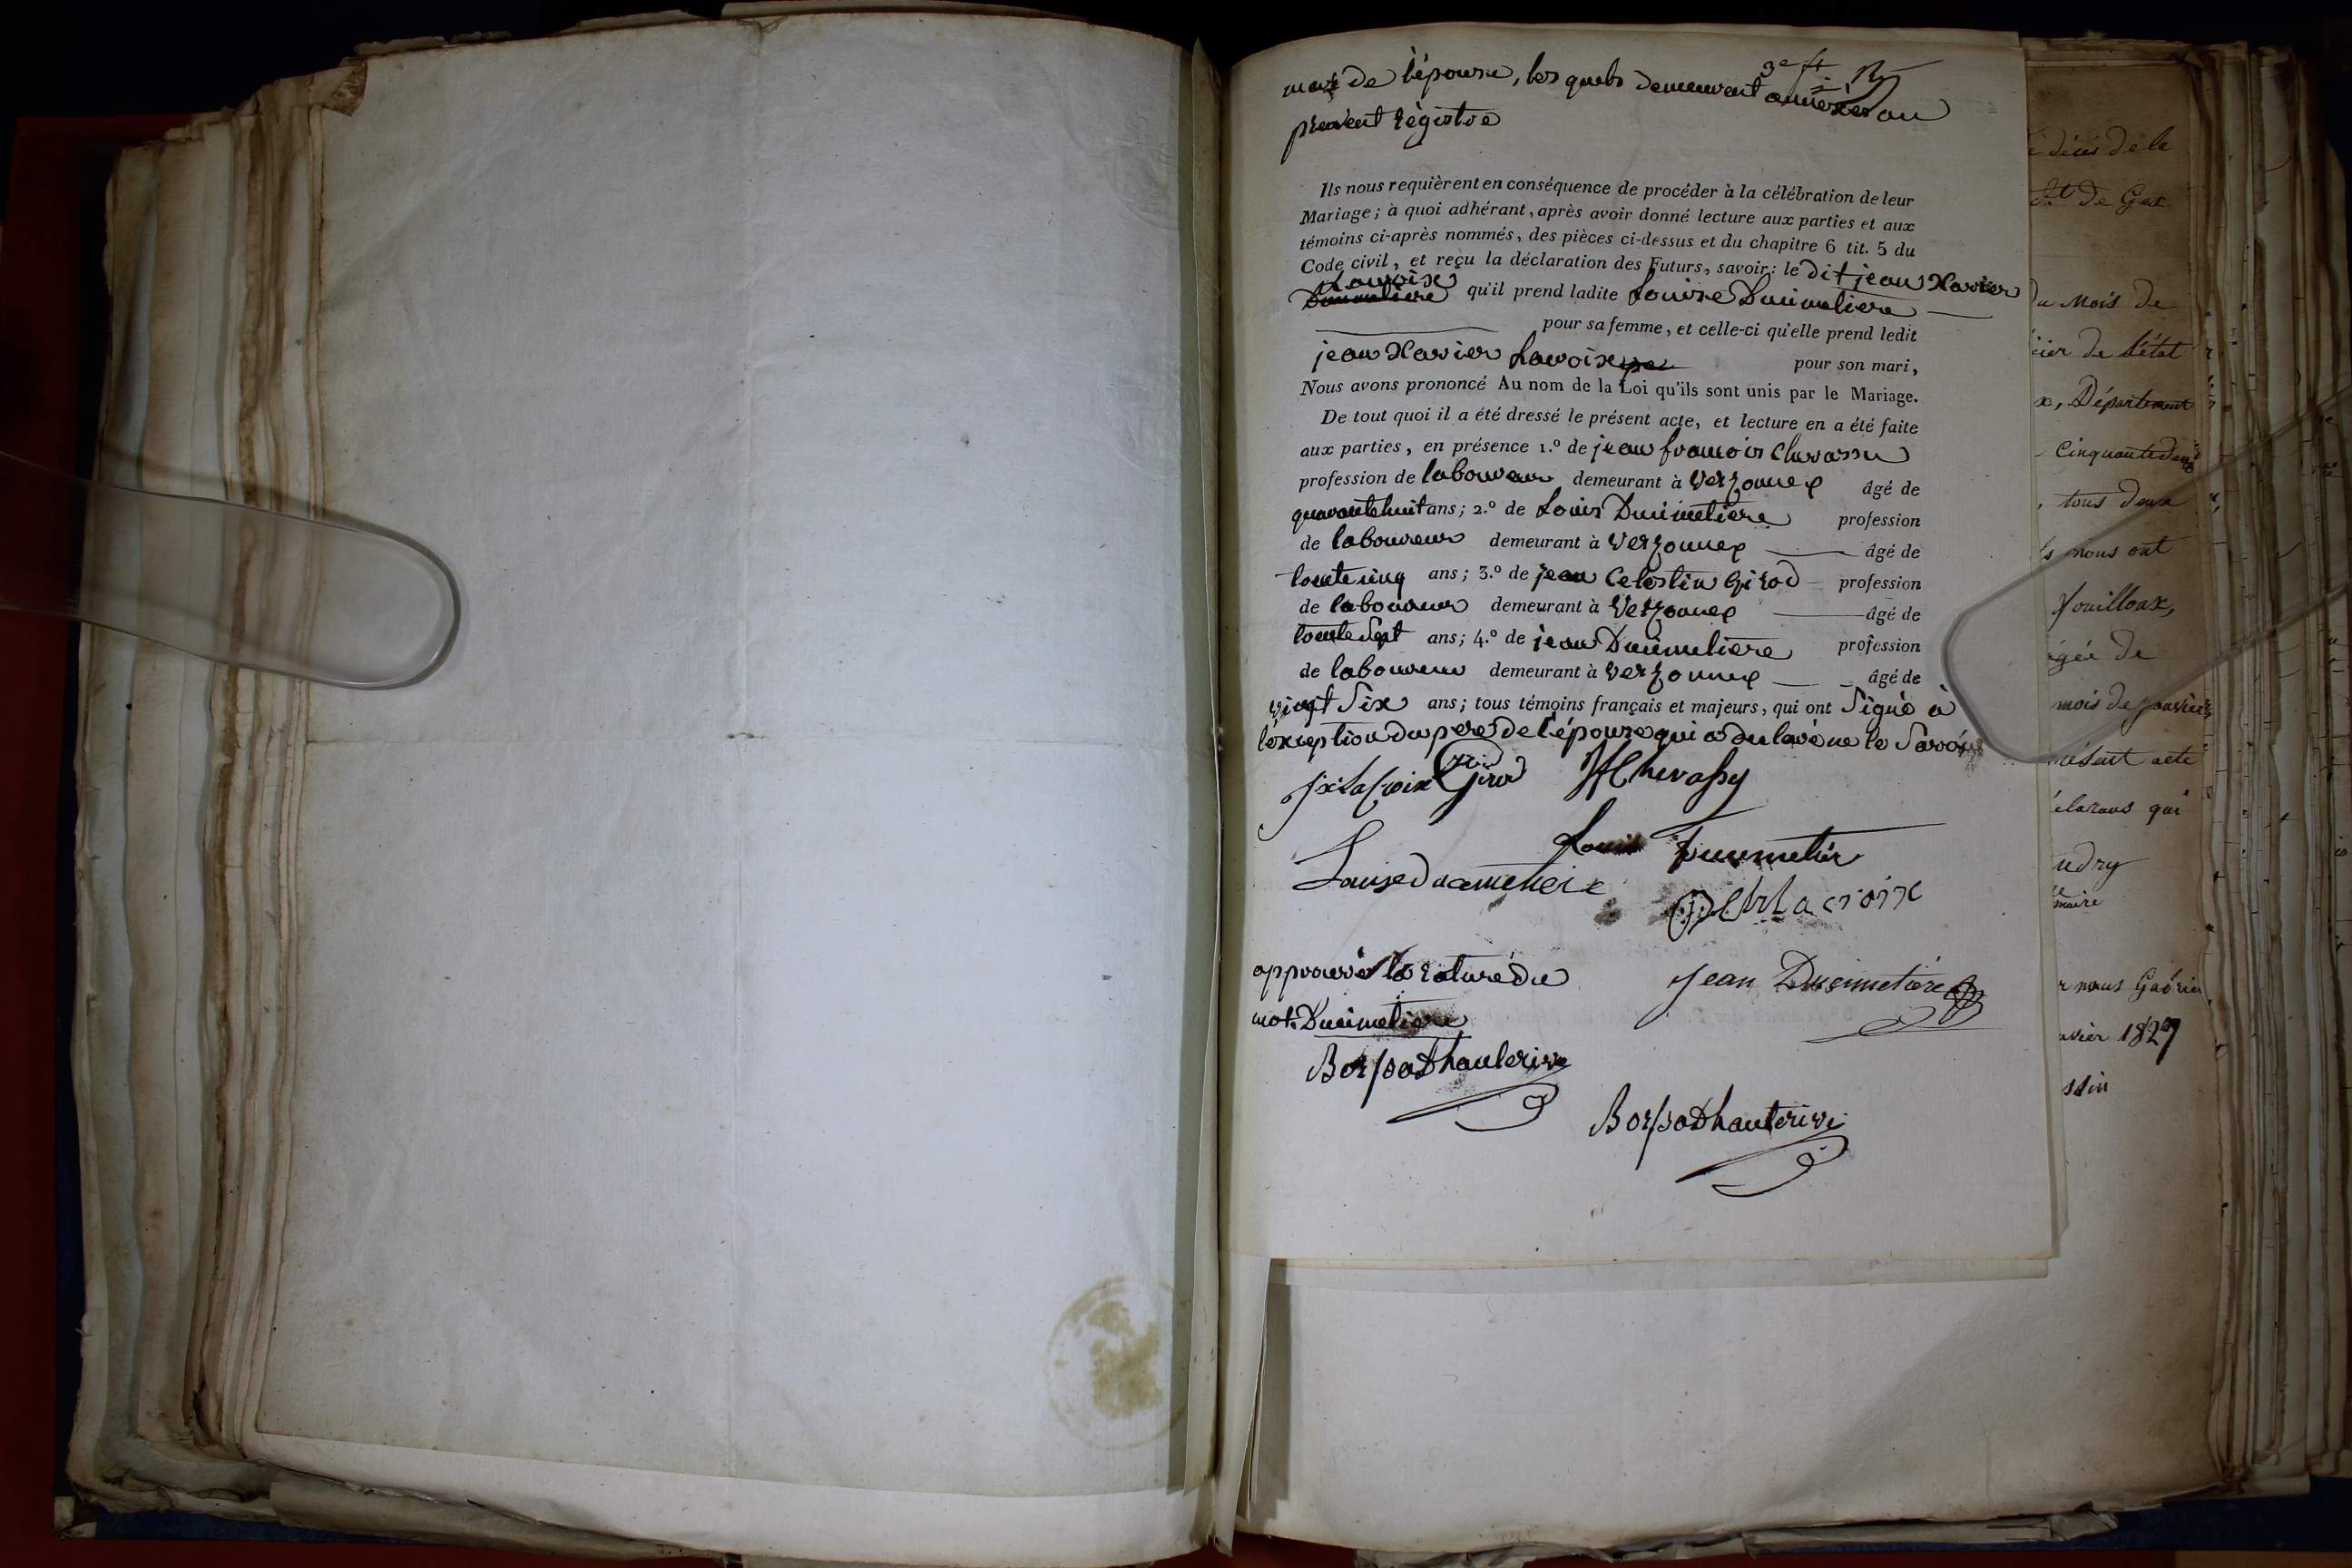 3e ft
mari de l'épouse, les quels demeurent annexés au
présent régistre
Ils nous requièrent en conséquence de procéder à la célébration de leur
Mariage; à quoi adhérant, après avoir donné lecture aux parties et aux
témoins ci-après nommés, des pièces ci-dessus et du chapitre 6 tit. 5 du
Code civil, et reçu la déclaration des Futurs, savoir: le dit jean Xavier
Lacroix
Ducimetiere qu'il prend ladite Louise Ducimetiere
pour sa femme, et celle-ci qu'elle prend ledit
jean Xavier Lacroix pour son mari,
Nous avons prononcé Au nom de la Loi qu'ils sont unis par le Mariage.
De tout quoi il a été dressé le présent acte, et lecture en a été faite
aux parties, en présence 1.º de jean francois Chevassu
profession de laboureur demeurant à Verzonnex âgé de
quarante huit ans; 2.º de Louis Ducimetiere profession
de laboureur demeurant à Verzonnex âgé de
trente cinq ans; 3.º de jean Celestin Girod profession
de laboureur demeurant à Verzonnex âgé de
trente Sept ans; 4.º de jean Ducimetiere profession
de laboureur demeurant à Verzonnex âgé de
vingt Six ans; tous témoins français et majeurs, qui ont Signé à
l'exception du pere de l'épouse qui a declaré ne le Savoir
jx Lacroix Girod JfChevassu
Louis Ducimetier
Louise ducimetiere
Lacroix
approuvé la rature du
mot Ducimetiere
Jean Ducimetiere
Borssat Dhauterive
Borssat Dhauterive
décès de la
dt de Gex
du Mois de
cier de l'état
x, Département
Cinquante deux
, tous deux
s nous ont
fouilloux,
agée de
mois de janvier
présent acte
élarans qui
udry
maire
r nous
nvier 1827
ssin